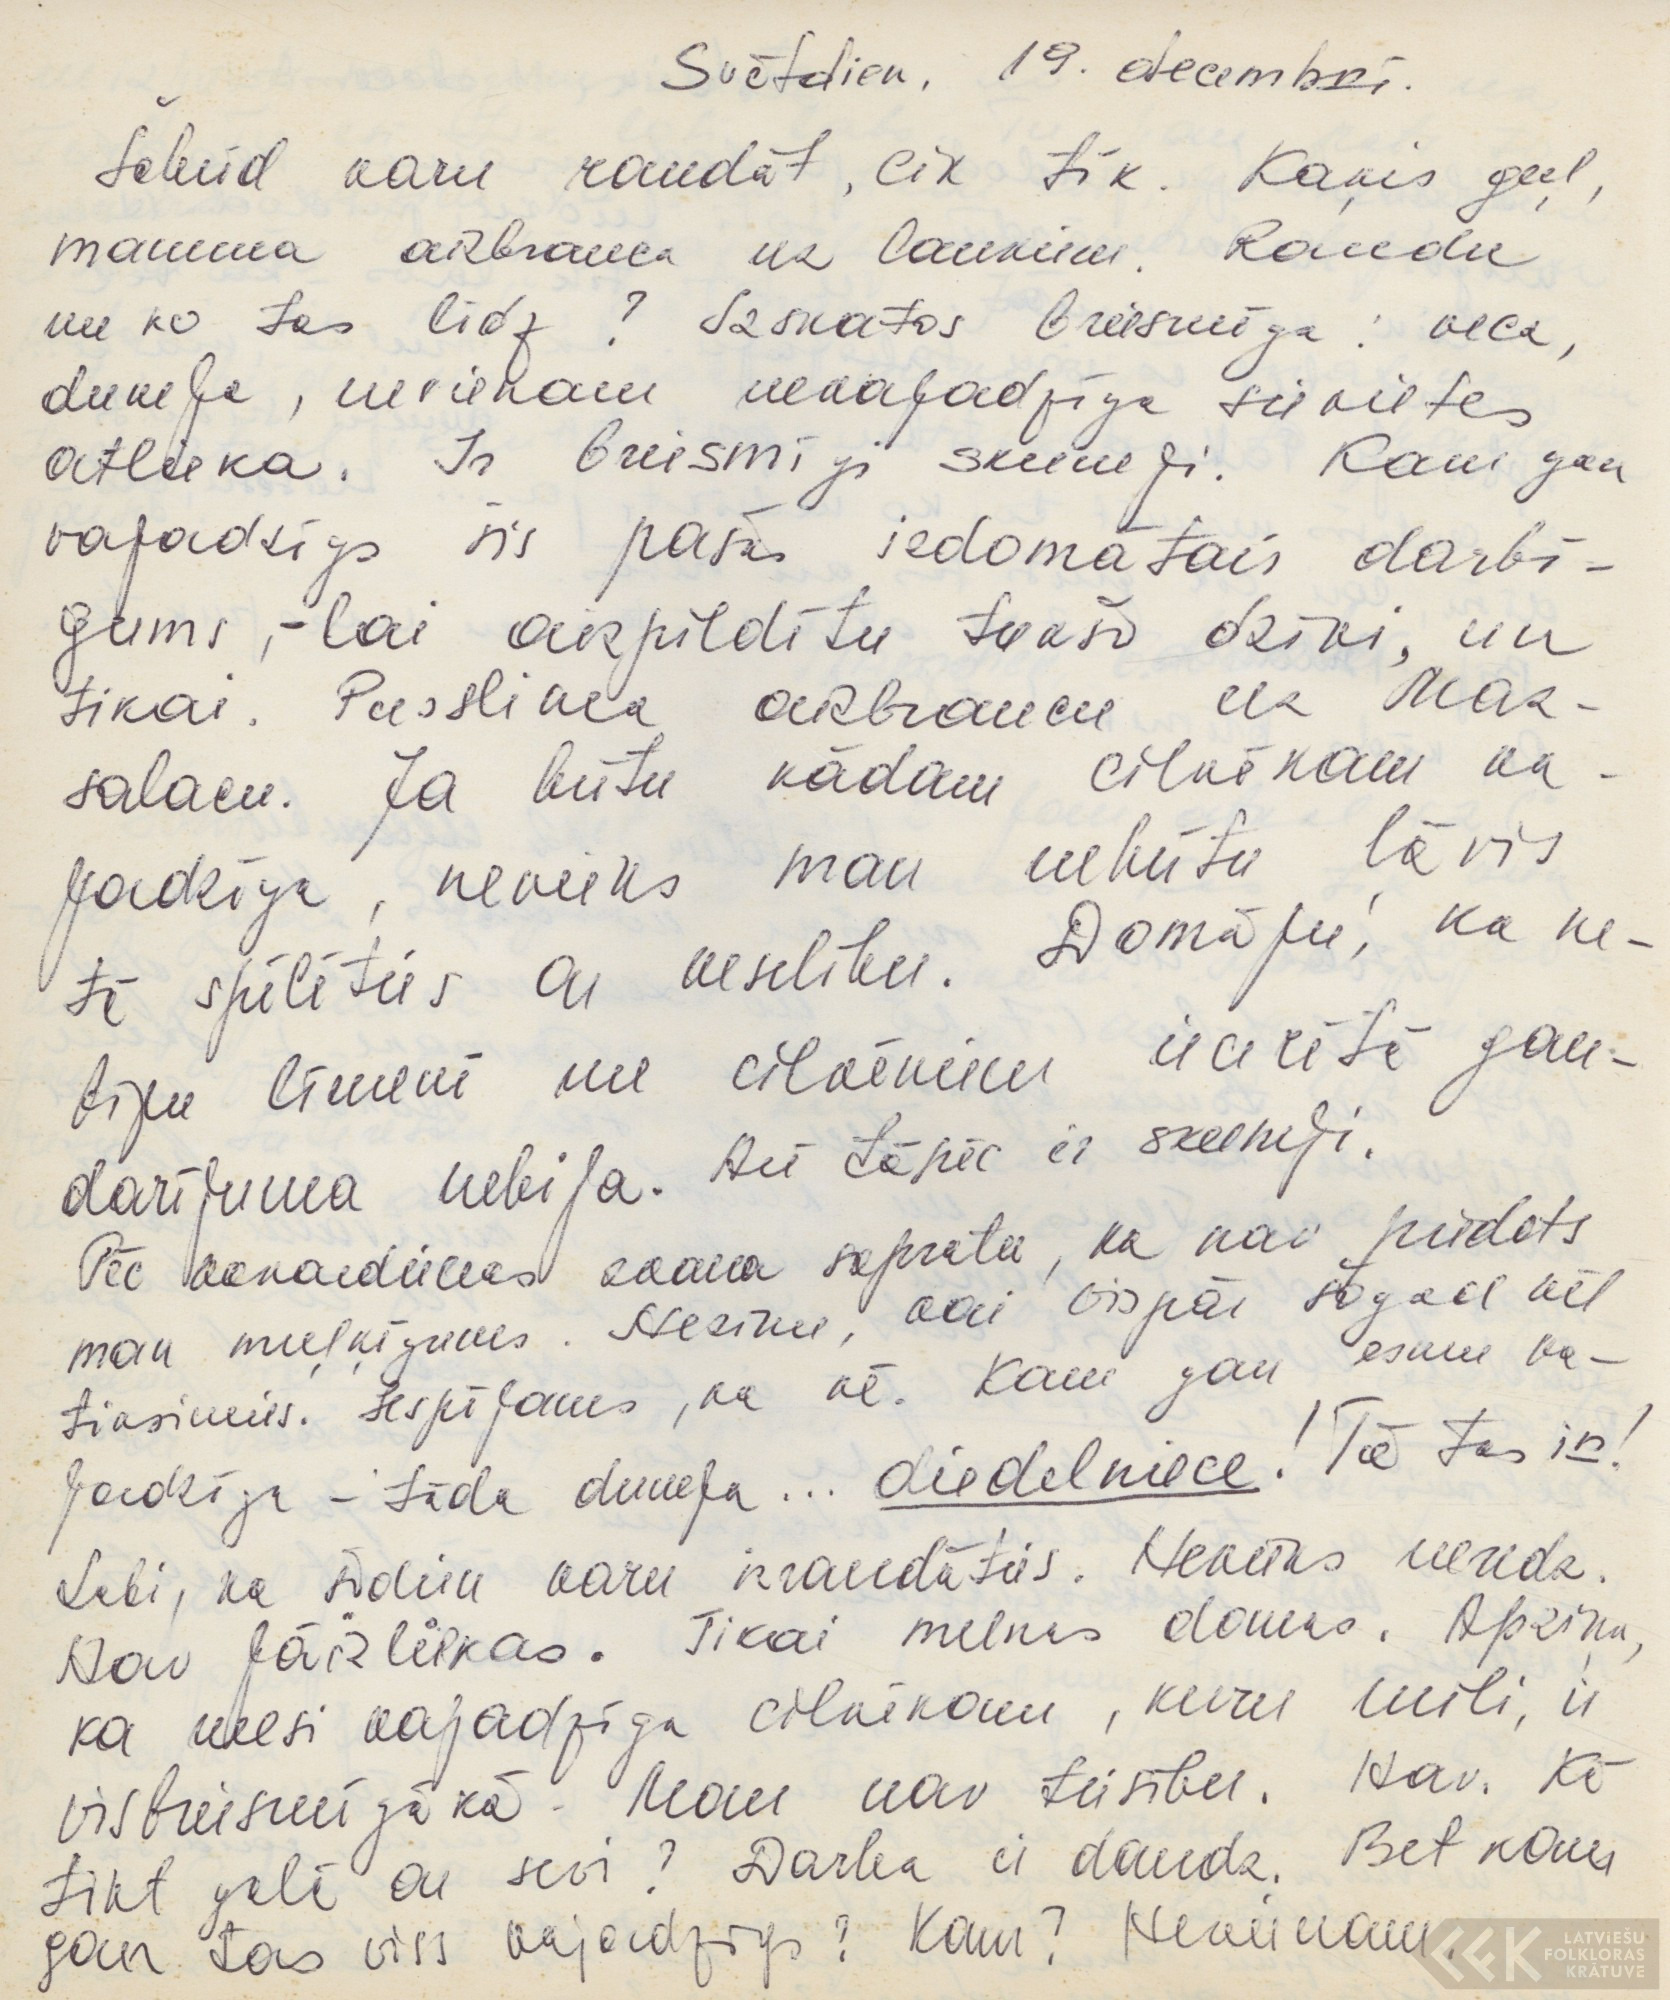 Svētdien, 19. decembrī.
Šobrīd varu raudāt, cik tīk. Kaķis guļ,
mamma aizbrauca uz laukiem. Raudu
un ko tas līdz? Izskatos briesmīga: veca,
dumja, nevienam nevajadzīga sievietes
atlieka. Ir briesmīgi skumji. Kam gan
vajadzīgs šis pašas iedomātais darbī-
gums, - lai aizpildītu tukšo dzīvi, un
tikai. Pusslima aizbraucu uz Maz-
salacu. Ja būtu kādam cilvēkam va-
jadzīga, neviens man nebūtu ļāvis
tā spēlēties ar veselību. Domāju, ka ne-
biju līmenī un cilvēkiem iecerētā gan-
darījuma nebija. Arī tāpēc ir skumji.
Pēc vakardienas zvana sapratu, ka nav piedots
man muļķīgums. Nezinu, vai vispār šogad vēl
tiksimies. Iespējams, ka nē. Kam gan esmu va-
jadzīga - tāda dumja... diedelniece! Tā tas ir!
Labi, ka šodien varu izraudāties. Neviens neredz.
Nav jāizliekas. Tikai melnas domas. Apziņa,
ka neesi vajadzīga cilvēkam, kuru mīli, ir
visbriesmīgākā. Man nav tiesību. Nav. Kā
tikt galā ar sevi? Darba ir daudz. Bet kam
gan tas viss vajadzīgs? Kam? Nevienam.
LATVIEŠU
FOLKLORAS
KRĀTUVE